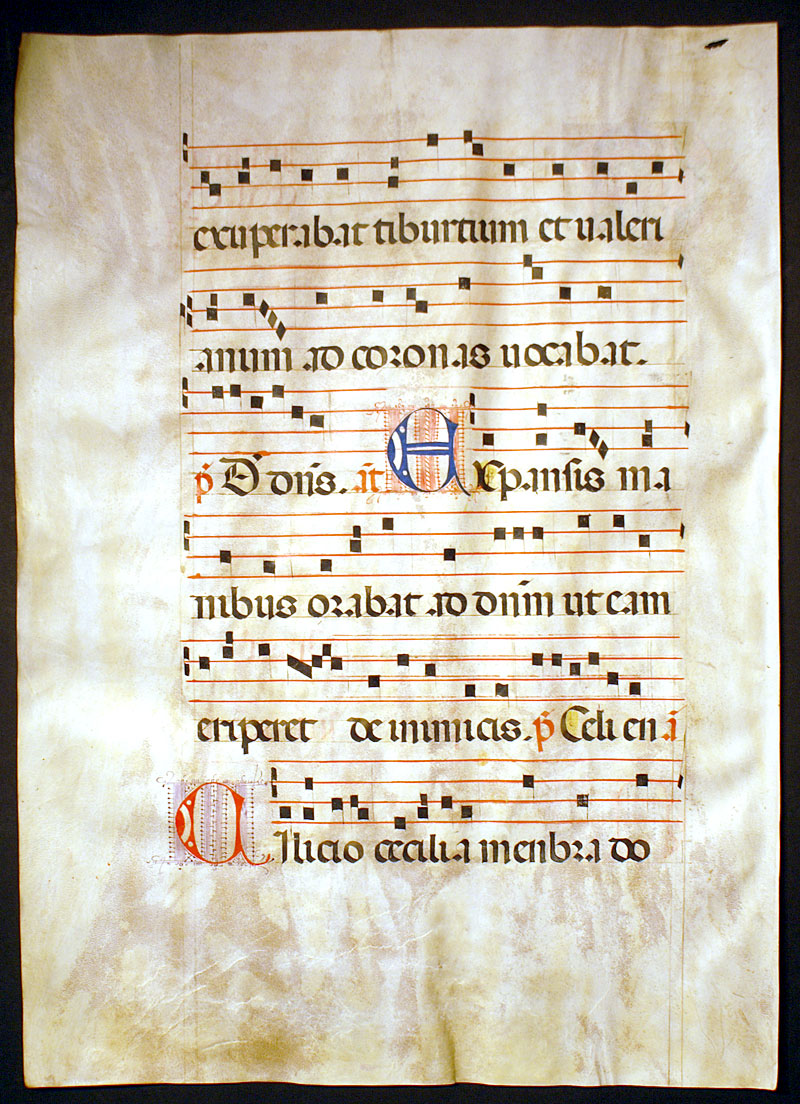 exuperabat tiburtium et ualeri
anum ad coronas uocabat.
p̄s Dn̄i dn̄s. an̄t Expansis ma
nibus orabat ad dn̄m ut eam
eriperet de inimicis. p̄s Celi en. an̄
Cilicio cecilia menbra do